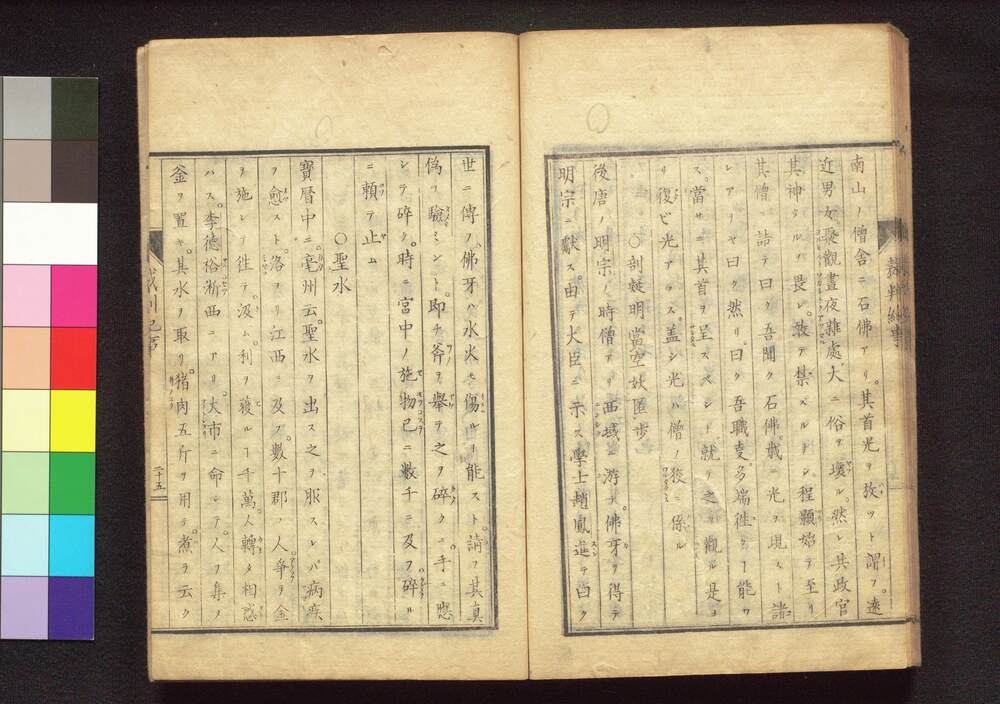 南山ノ僧舎ニ石佛アリ。其首光ヲ放ツト謂フ。遠
近男女聚觀晝夜雜處。大ニ俗ヲ壞ル。然レ𪜈政官
其神タルヲ畏レ。敢テ禁ズルナシ。程顥始テ至リ
其僧ニ詰テ曰ク吾聞ク石佛歳ニ光ヲ現スト諸
レアリヤ曰ク然リ。曰ク吾職事多端徃ク能ワ
ス。當サニ其首ヲ呈スベシ。就テ之ヲ觀ル是ヨ
リ復ビ光アラス。盖シ光ハ僧ノ狡ニ係ル
〇剖疑明當空妖匿歩
後唐ノ明宗ノ時僧アリ西域ニ游ヒ佛牙ヲ得テ
明宗ニ獻ス。由テ大臣ニ示ス學士趙鳳進テ曰ク
世ニ傳フ佛牙ハ水火モ傷ル能スト請フ其真
偽ヲ驗ミント。即チ斧ヲ舉テ之ヲ碎ク。手ニ應
シテ碎ク。時ニ宮中ノ施物已ニ數千ニ及フ碎ル
ニ賴テ止ム
〇聖水
寶曆中ニ亳州云。聖水ヲ出ス之ヲ服スレバ病疾
ヲ愈スト。洛ヨリ江西ニ及ブ。數十郡ノ人爭ヲ金
ヲ施シテ徃テ汲ム。利ヲ獲ル千萬。人轉タ相惑
ハス。李德裕浙西ニアリ。大市ニ命シテ。人ヲ集ノ
釜ヲ置キ。其水ヲ取リ。猪肉五斤ヲ用テ。煮ヲ云ク
二十五